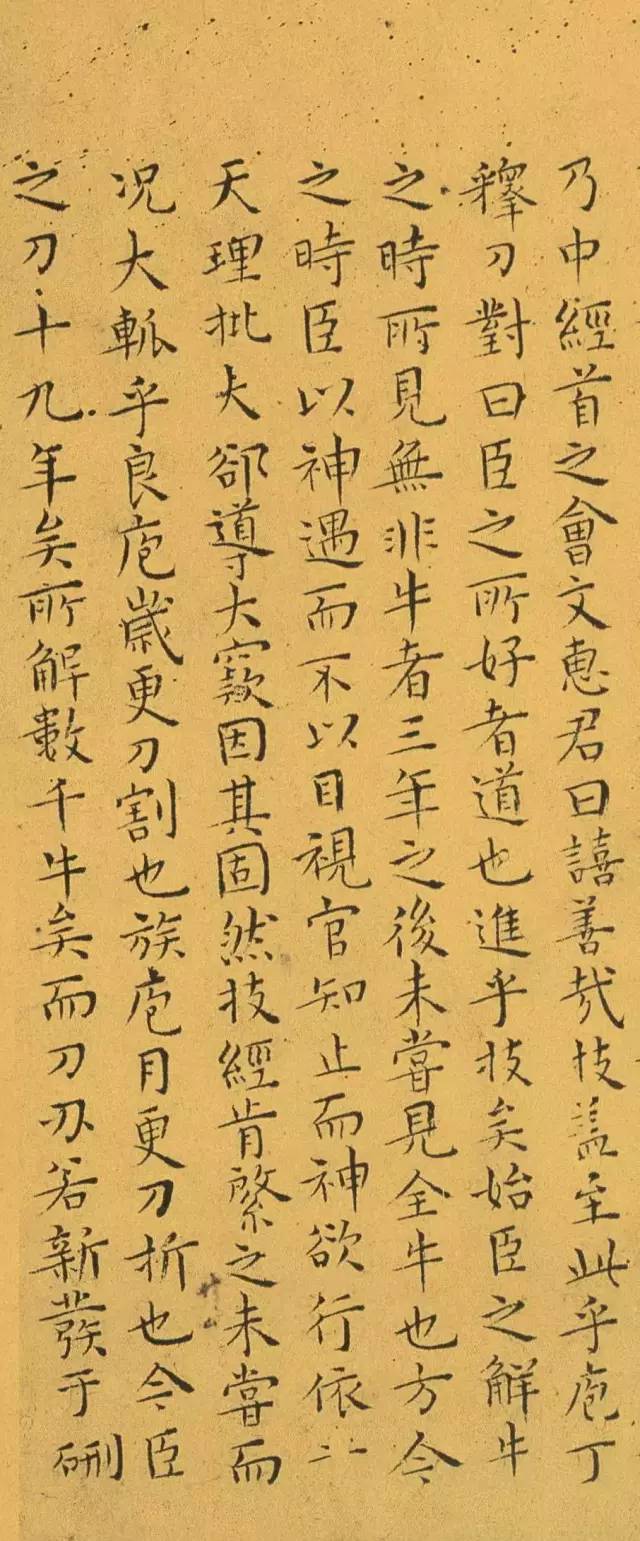 乃中經首之會文惠君曰譆善哉技蓋至此乎庖丁
釋刀對曰臣之所好者道也進乎技矣始臣之解牛
之時所見無非牛者三年之後未嘗見全牛也方今
之時臣以神遇而不以目視官知止而神欲行依
天理批大郤導大窾因其固然技經肯綮之未嘗而
況大軱乎良庖歲更刀割也族庖月更刀折也今臣
之刀十九年矣所解數千牛矣而刀刃若新發于硎